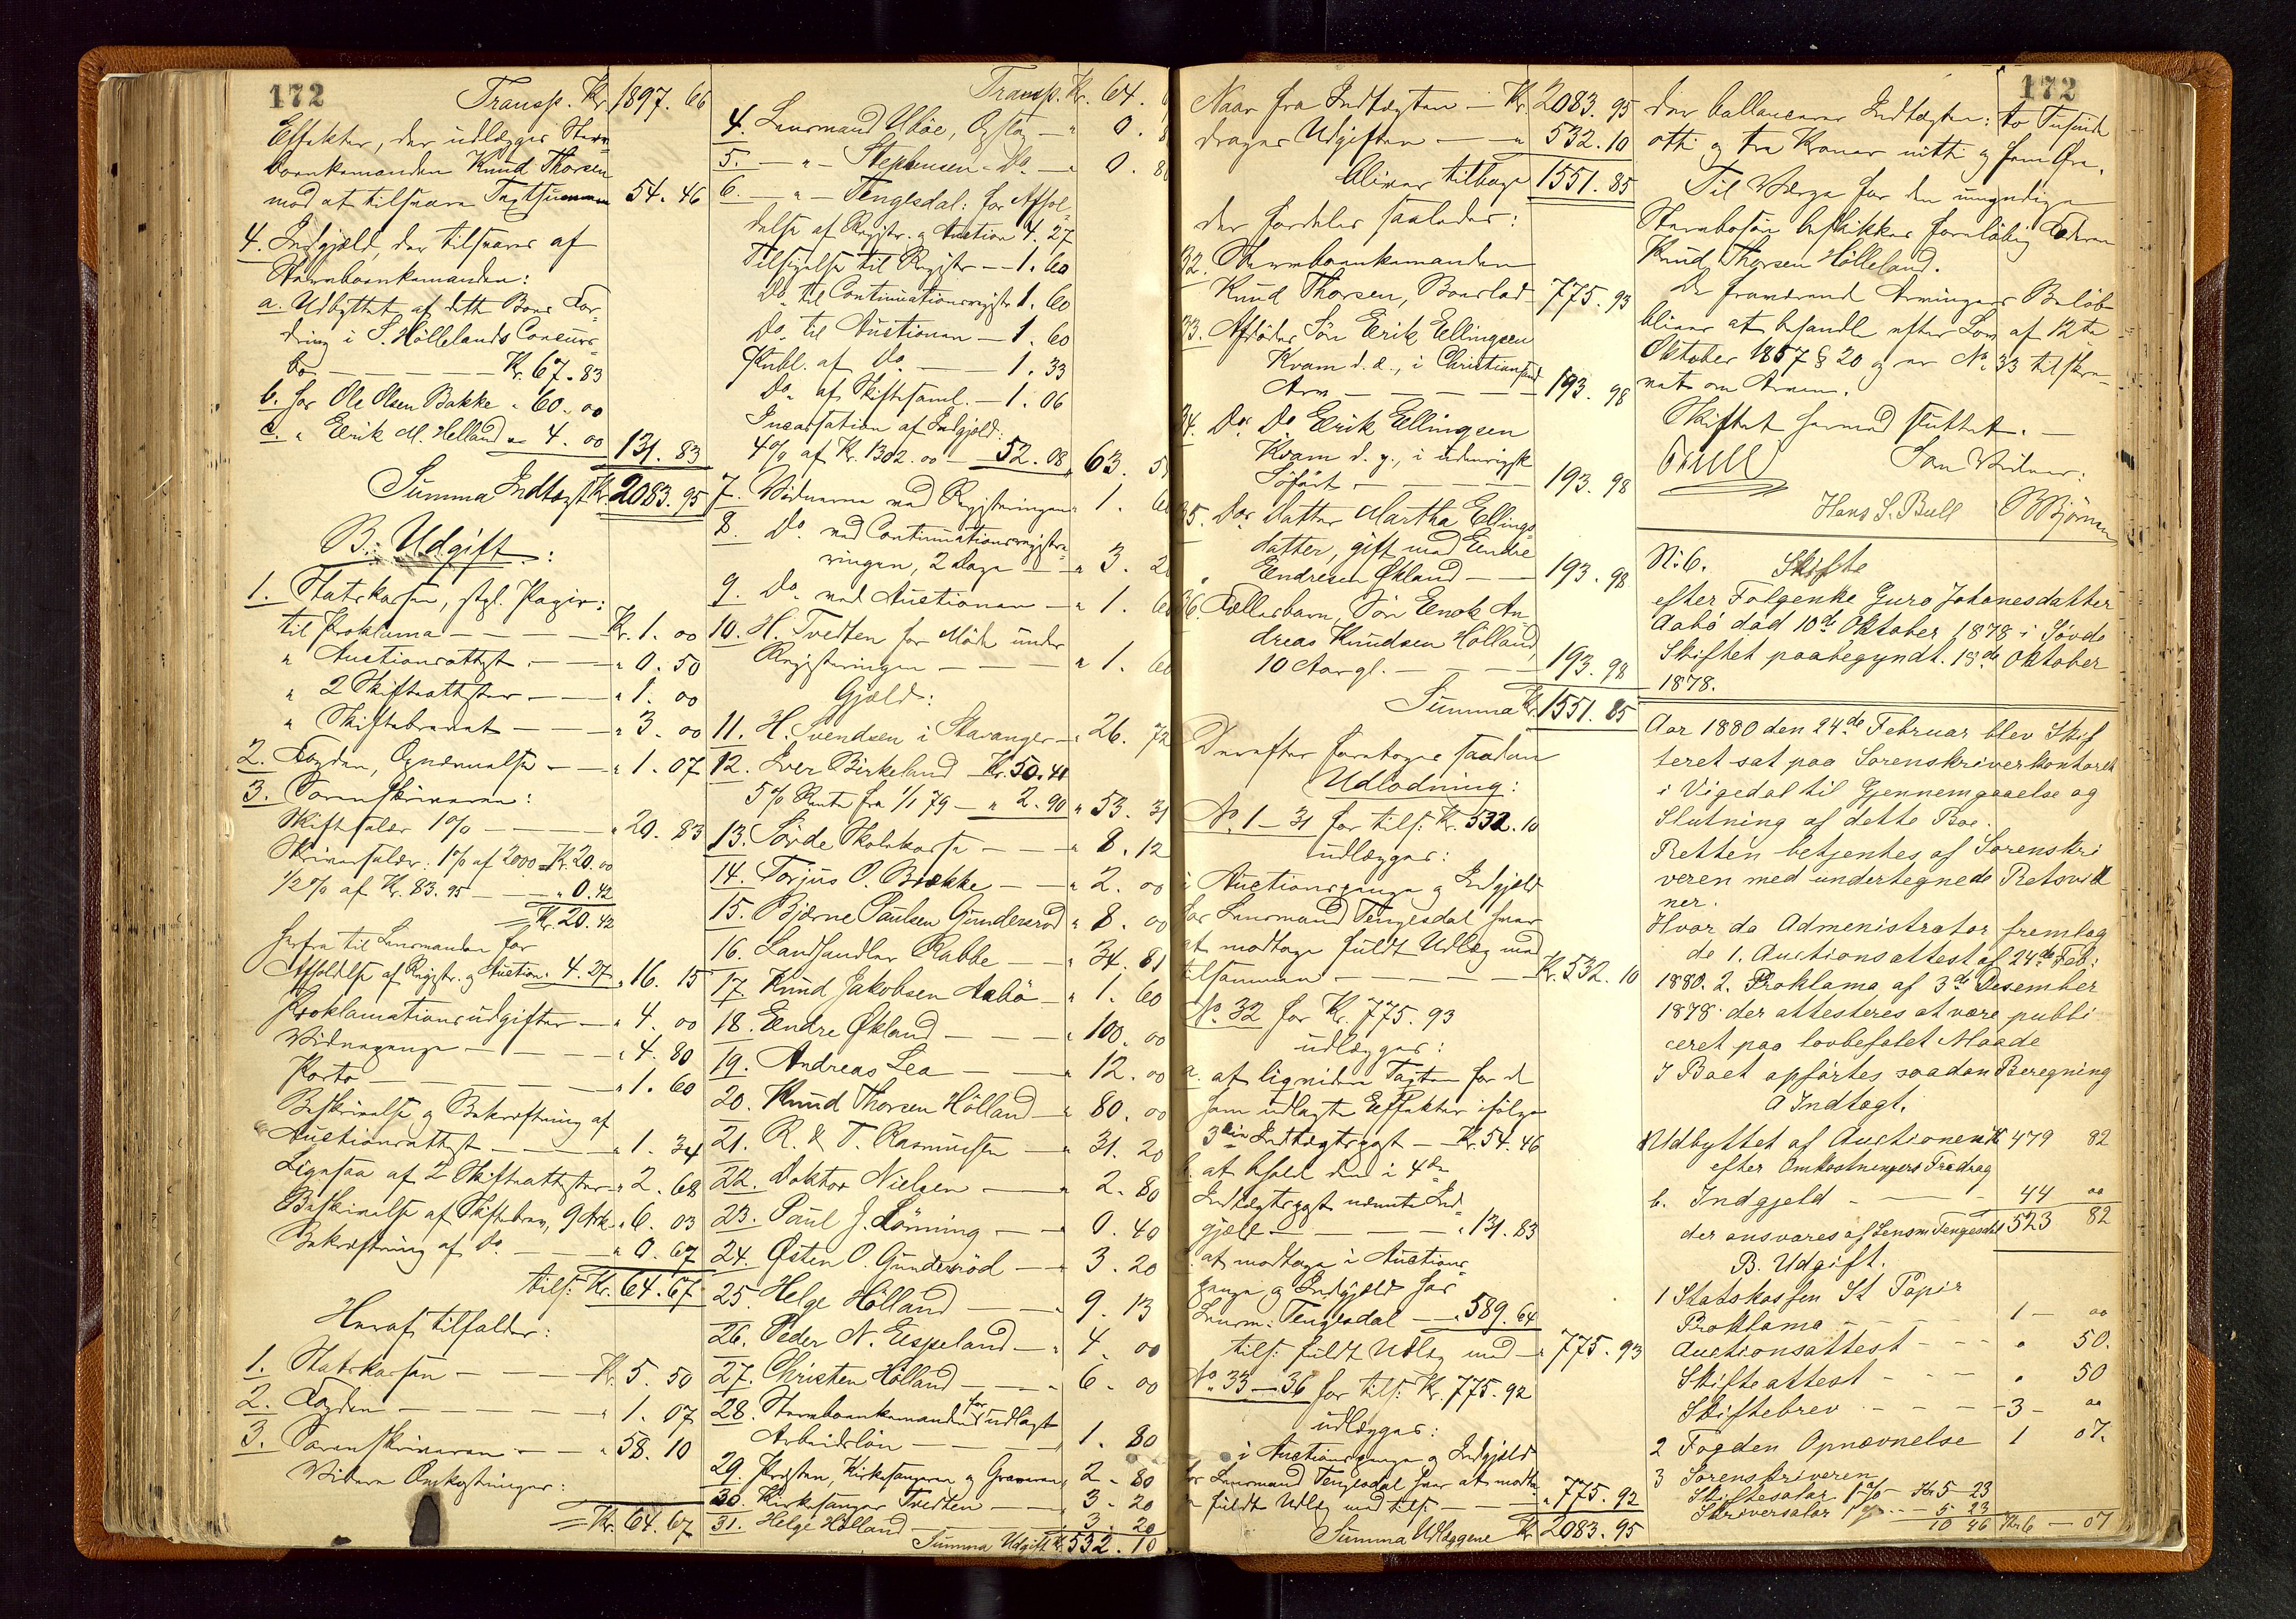 172
Transp. Kr. 1897. 66
Effekter, der udlægges Sterv-
boenkemanden Knud Thorsen
mod at tilsvare Taxtsummen 54. 46
4. Indgjæld, der tilsvares af
Stervboenkemanden:
a. Udbyttet af dette Boes For-
dring i S. Höllelands Concurs-
bo — Kr. 67. 83
b. hos Ole Olsen Bakke " 60. 00
c. " Eerik M. Helland " 4. 00 131. 83
Summa Indtægt Kr. 2083. 95
B. Udgift:
1. Statskassen, stpl. Papir:
til Proklama — Kr. 1. 00
" Auctionsattest — " 0. 50
" 2 Skifteattester — " 1. 00
" Skiftebrevet — " 3. 00
2. Fogden, Opnævnelse — " 1. 07
3. Sorenskriveren:
Skiftesalær 1% — " 20. 83
Skriversalær: 1% af 2000 = Kr. 20. 00
1/2 % af Kr. 83. 95 — " 0. 42
= Kr. 20. 42
herfra til Lensmanden for
Afholdelse af Registr. og Auction. 4. 27 " 16. 15
Proklamationsudgifter — " 4. 00
Vidnepenge — " 4. 80
Porto — " 1. 60
Beskrivelse og Bekræftning af
Auctionsattest — " 1. 34
Ligesaa af 2 Skifteattester " 2. 68
Beskrivelse af Skiftebrev, 9 Ark " 6. 03
Bekræftning af do. — " 0. 67
tils. Kr. 64. 67
Heraf tilfalder:
1. Statskassen — Kr. 5. 50
2. Fogden — " 1. 07
3. Sorenskriveren — " 58. 10
Videre Omkostninger:
= Kr. 64. 67
Transp. Kr. 64.
4. Lensmand Uböe, Opslag — " 0. 8
5. — " — Stephensen — Do. — " 0. 80
6. — " — Tengesdal: for Afhol-
delse af Registr. og Auction 4. 27
Tilsigelse til Registr. — 1. 60
Do. til Continuationsregistr. 1. 60
Do. til Auctionen — 1. 60
Publ. af Do. — 1. 33
Do. af Skiftesaml. — 1. 06
Incassation af Indgjæld:
4% af Kr. 1302. 00 — 52. 08 " 63. 5
7. Vidnerne ved Registreringen " 1. 60
8. Do. ved Continuationsregistre-
ringen, 2 Dage — " 3. 20
9. Do. ved Auctionen — " 1. 60
10. H. Tvedten for Möde under
Registreringen — " 1. 60
Gjæld:
11. H. Svendsen i Stavanger — " 26. 72
12. Iver Birkeland Kr. 50. 41
5% Rente fra 1/1 79 — " 2. 90 " 53. 31
13. Sövde Skolekasse — " 8. 12
14. Torjus O. Brække — " 2. 00
15. Bjærne Paulsen Gunderöd " 8. 00
16. Landhandler Rabbe — " 34. 81
17. Knud Jakobsen Aabö — " 1. 60
18. Eendre Økland — " 100. 00
19. Andreas Lea — " 12. 00
20. Knud Thorsen Hölland — " 80. 00
21. R. & T. Rasmussen — " 31. 20
22. Doktor Nielsen — " 2. 80
23. Poul J. Lönning — " 0. 40
24. Østen O. Gunderöd — " 3. 20
25. Helge Hölland — " 9. 13
26. Peder N. Eespeland — " 4. 00
27. Christen Hölland — " 6. 00
28. Stervboenkemanden for udlagt
Arbeidslön — " 1. 80
29. Præsten, Kirkesangeren og Graveren " 2. 80
30. Kirkesanger Tvedten — " 3. 20
31. Helge Hölland — " 3. 20
Summa Udgift Kr. 532. 10
Naar fra Indtægten — Kr. 2083. 95
drages Udgiften — " 532. 10
bliver tilbage 1551. 85
der fordeles saaledes:
32. Stervboenkemanden
Knud Thorsen, Boeslod 775. 93
33. Afdödes Sön Eerik Ellingsen
Kvam d. æ., i Christianssand
Arv — 193. 98
34. Do. Do. Eerik Ellingsen
Kvam d. y., i udenrigsk
Söfart — 193. 98
35. Do. Datter Martha Ellings-
datter, gift med Eendre
Eendresen Økland — 193. 98
36. Fællesbarn, Sön Eenok An-
dreas Knudsen Hölland,
10 Aar gl. — 193. 98
Summa Kr. 1551. 85
Derefter foretoges saadan
Udlodning:
No. 1–31 for tils. Kr. 532. 10
udlægges:
i Auctionspenge og Indgjæld
hos Lensmand Tengesdal hvor-
at modtage fuldt Udlæg med
tilsammen — Kr. 532. 10
No. 32 for Kr. 775. 93
udlægges:
a. at ligvidere Taxten for de
ham udlagte Effekter ifölge
3die Indtægtspost — Kr. 54. 46
b. at beholde den i 4de
Indtægtspost nævnte Ind-
gjæld — " 131. 83
c. at modtage i Auctions-
penge og Indgjæld hos
Lensm. Tengesdal — " 589. 64
tils. fuldt Udlæg med — " 775. 93
No. 33–36 for tils. Kr. 775. 92
udlægges:
i Auctionspenge og Indgjæld
hos Lensmand Tengesdal hvor at modta-
ge fuldt Udlæg med tils. — " 775. 92
Summa Udlæggene Kr. 2083. 95
172
der ballancerer Indtægten: to Tusinde
otti og tre Kroner nitti og fem Øre.
Til Værge for den umyndige
Stervbosön beskikkes foreløbig Faderen
Knud Thorsen Hölleland.
De fraværende Arvingers Beløb
bliver at behandle efter Lov af 12te
Oktober 1857 § 20 og er No. 33 tilskre-
vet om Arven.
Skiftet hermed sluttet. —
Som Vidner:
Hans S. Bull B Björnsen
N: 6. Skifte
efter Fölgenke Guro Johanesdatter
Aabö död 10de Oktober 1878 i Sövde
Skiftet paabegyndt 18de Oktober
1878.
Aar 1880 den 24de Februar blev Skif
teret sat paa Sorenskriverkontoret
i Vigedal til Gjennemgaaelse og
Slutning af dette Boe.
Retten betjentes af Sorenskri
veren med undertegnede Retsvid
ner.
Hvor da Admenistrator fremlag
de 1. Auctionsattest af 24de Feb:
1880. 2. Proklama af 3de Desember
1878 der attesteres at være publi
ceret paa lovbefalet Maade
I Boet opförtes saadan Beregning
A Indtægt.
a Udbyttet af Auctionen Kr 479 82
efter Omkostningers Fradrag
b. Indgjeld — 44 00
der ansvares af Lensm Tengesdal 523 82
B. Udgift.
1 Statskassen St Papir
Proklama — 1 — 00
Auctionsattest — " 50.
Skifteattest — " 50
Skiftebrev — 3 — 00
2 Fogden Opnævnelse 1 07.
3 Sorenskriveren
Skiftesalær 1% Kr 5 23
Skriversalær 1% — 5 23
10 46 Kr 6 — 07